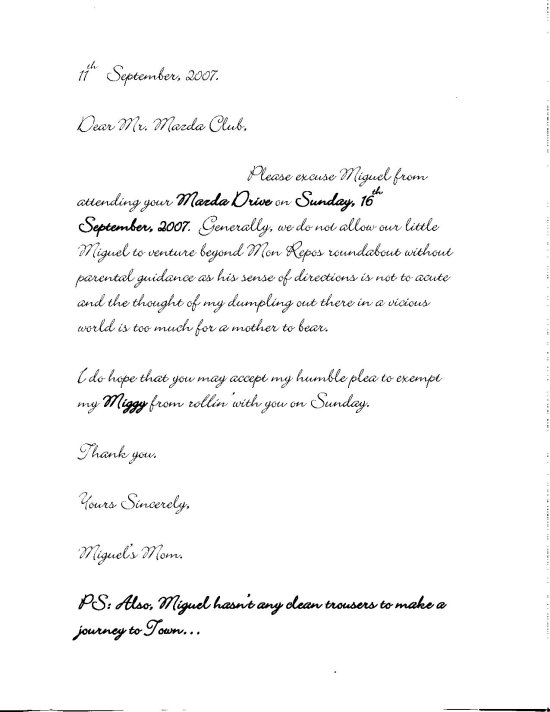 11th September, 2007.
Dear Mr. Mazda Club,
Please excuse Miguel from
attending your Mazda Drive on Sunday, 16th
September, 2007. Generally, we do not allow our little
Miguel to venture beyond Mon Repos roundabout without
parental guidance as his sense of directions is not to acute
and the thought of my dumpling out there in a vicious
world is too much for a mother to bear.
I do hope that you may accept my humble plea to exempt
my Miggy from rollin' with you on Sunday.
Thank you.
Yours Sincerely,
Miguel's Mom.
PS: Also, Miguel hasn't any clean trousers to make a
journey to Town...